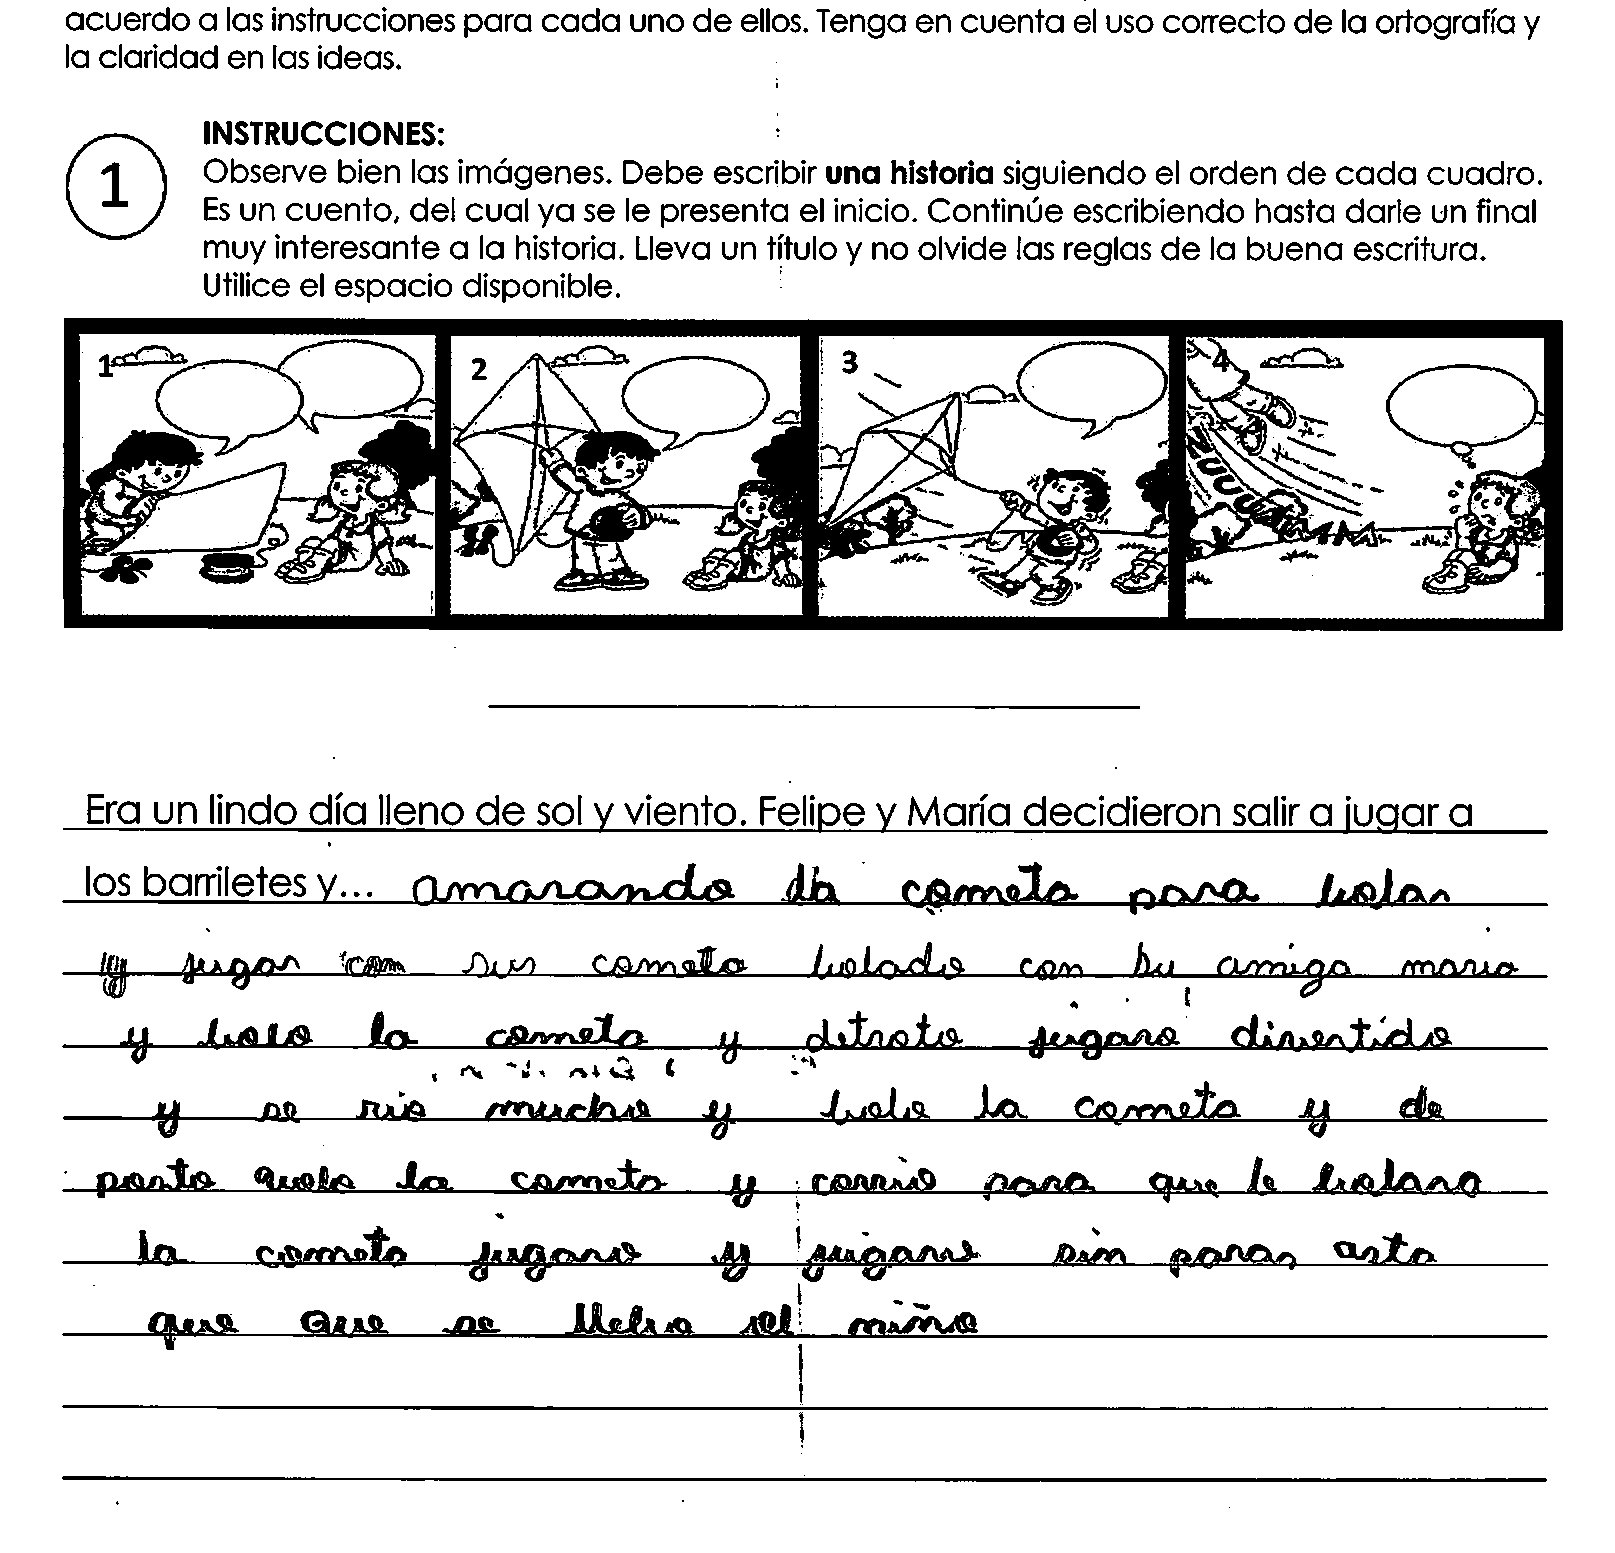 acuerdo a las instrucciones para cada uno de ellos. Tenga en cuenta el uso correcto de la ortografía y
la claridad en las ideas.
1
INSTRUCCIONES:
Observe bien las imágenes. Debe escribir una historia siguiendo el orden de cada cuadro.
Es un cuento, del cual ya se le presenta el inicio. Continúe escribiendo hasta darle un final
muy interesante a la historia. Lleva un título y no olvide las reglas de la buena escritura.
Utilice el espacio disponible.
1 2 3 4
ZUUUUMMM
Era un lindo día lleno de sol y viento. Felipe y María decidieron salir a jugar a
los barriletes y... amarando la cometa para bolar
y jugar com sus cometa bolado con su amiga maria
y bolo la cometa y detrato jugaro divertido
y se rio mucho y bolo la cometa y de
porto la cometa y corrio para que le bolara
la cometa jugaro y jugaro sin parar asta
que que se llebo el niño